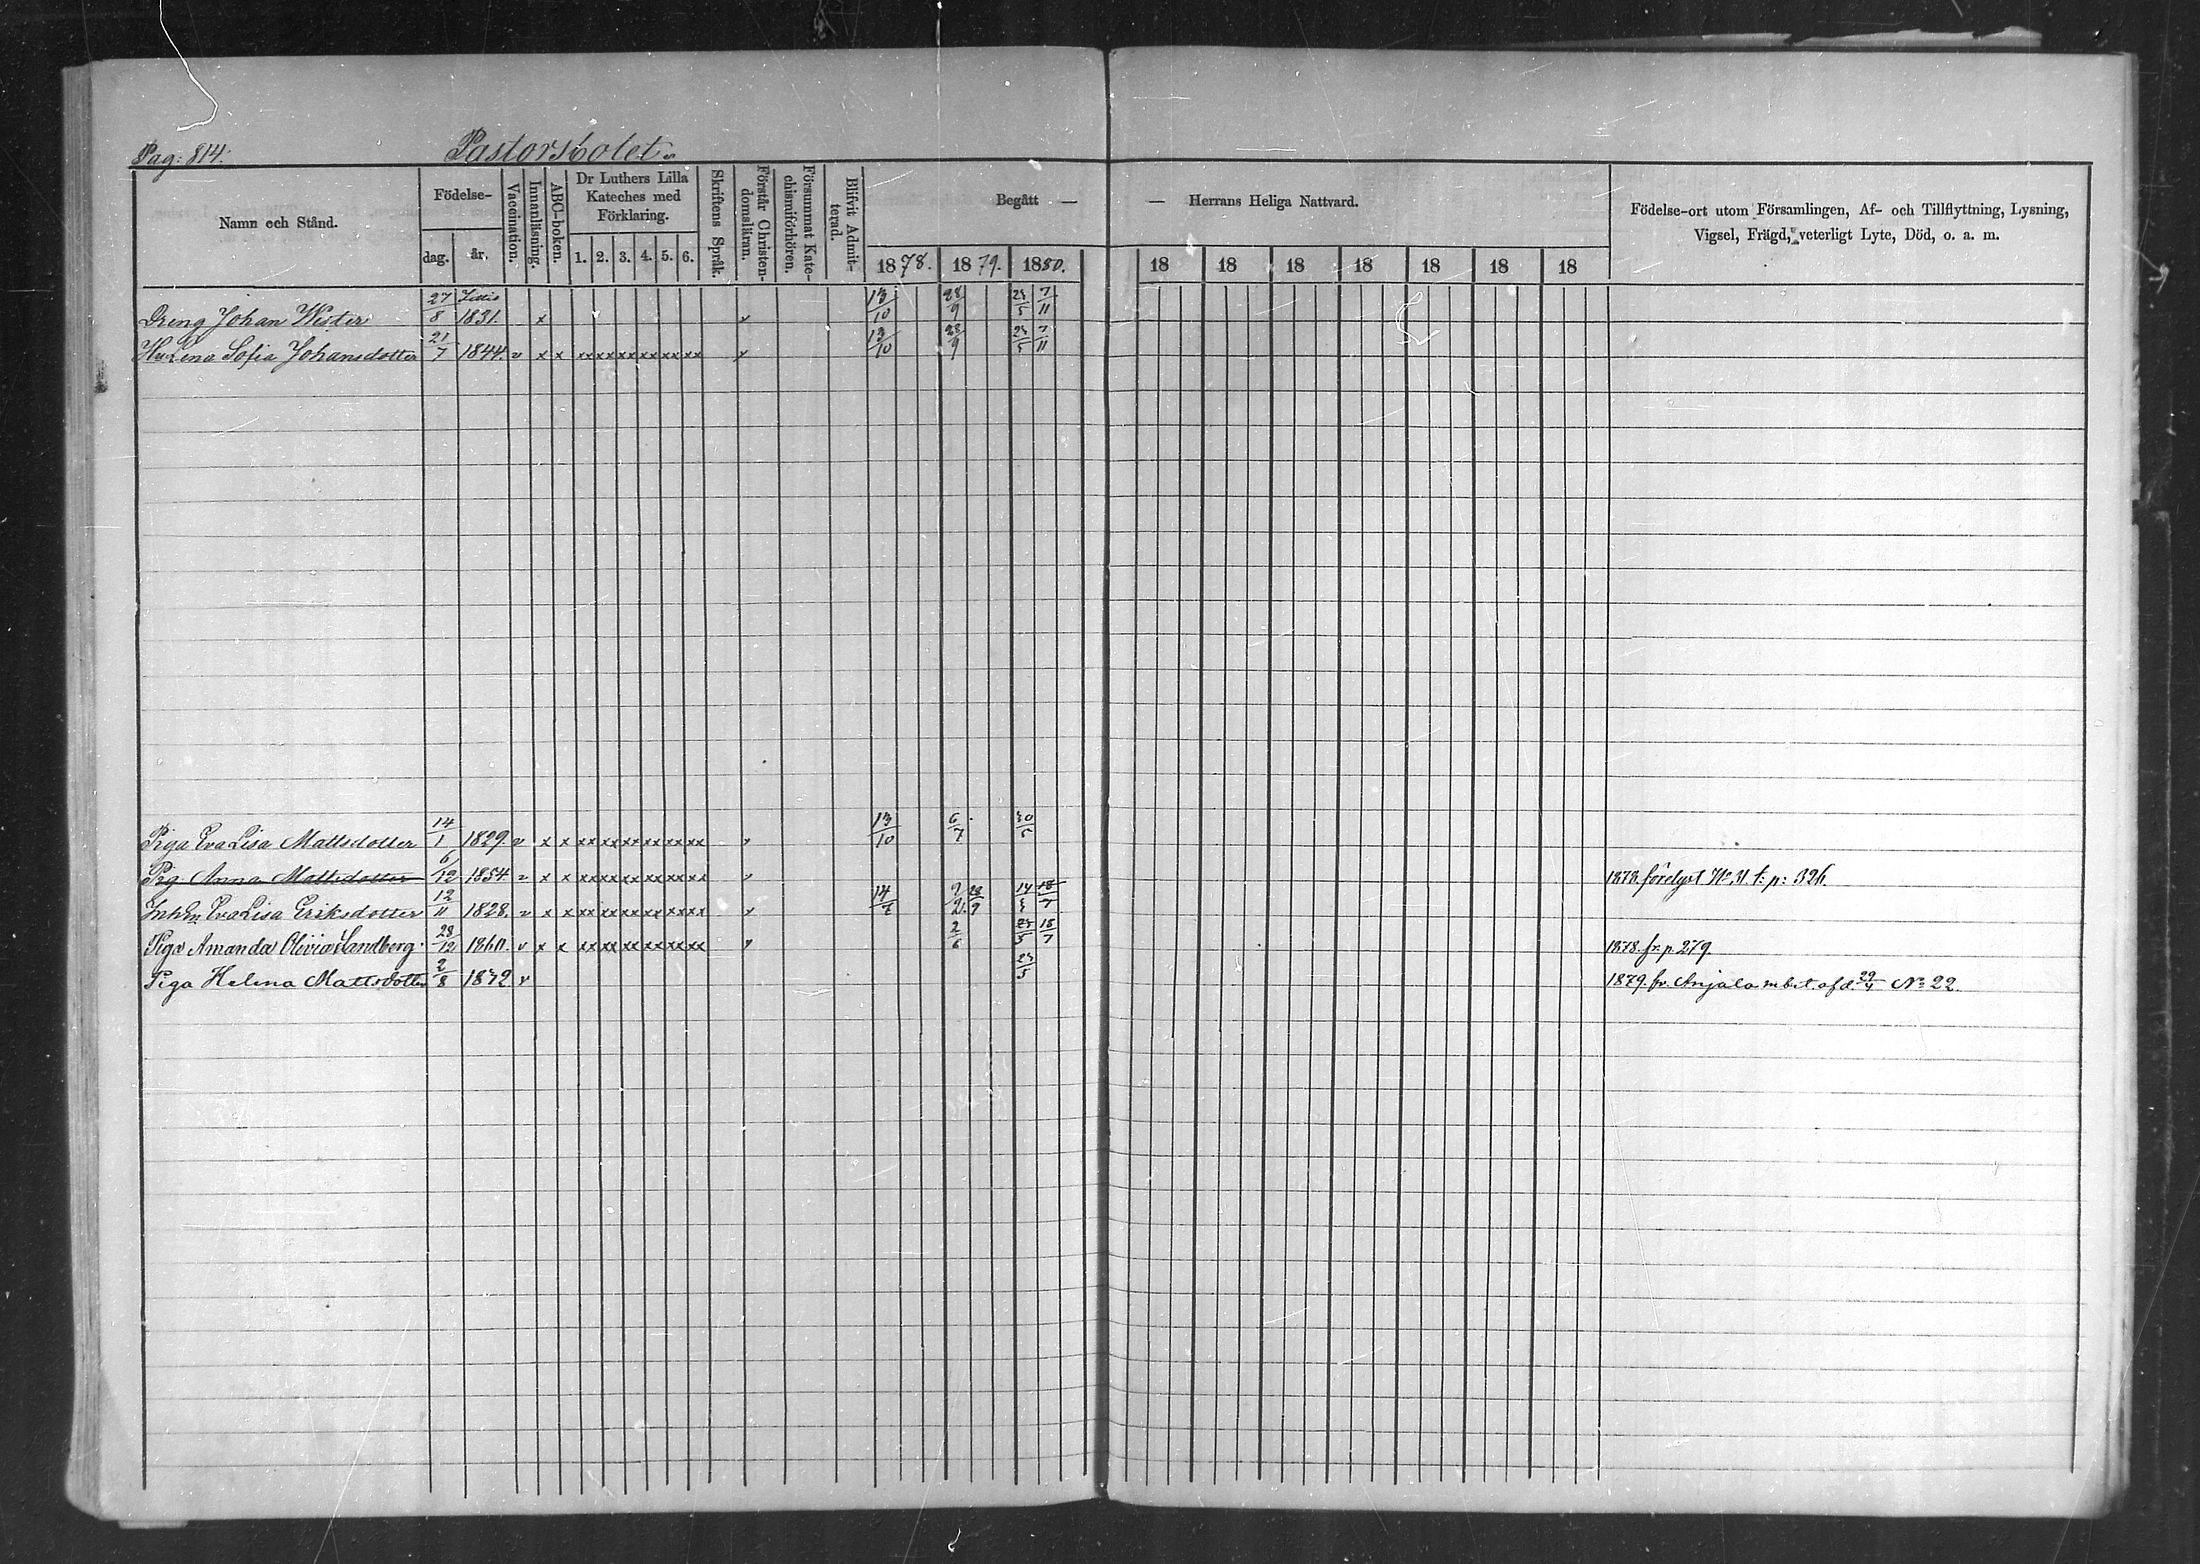 Pag: 814.
Pastorsbolet.
Namn och Stånd.
Födelse-
dag.
år.
Vaccination.
Innanläsning.
ABC-boken.
Dr Luthers Lilla
Kateches med
Förklaring.
1. 2. 3. 4. 5. 6.
Skriftens Språk.
Förstår Christen-
domsläran.
Försummat Kate-
chismiförhören.
Blifvit Admit-
terad.
Begått — — Herrans Heliga Nattvard.
1878. 1879. 1880. 18 18 18 18 18 18 18
Födelse-ort utom Församlingen, Af- och Tillflyttning, Lysning,
Vigsel, Frägd, veterligt Lyte, Död, o. a. m.
Dreng Johan Wister 27/8 1831. x v 13/10 28/9 23/5 7/11
Hu Lena Sofia Johansdotter 21/7 1844. v x x xx xx xx xx xx xx v 13/10 28/9 23/5 7/11
Piga Eva Lisa Mattsdotter 14/1 1829. v x x xx xx xx xx xx xx v 13/10 6/7 30/5
Pig. Anna Mattsdotter 6/12 1854 v x x xx xx xx xx xx xx v 1878. förelyst No 31 t: p: 326.
Eva Lisa Eriksdotter 12/11 1828. v x x xx xx xx xx xx xx v 14/7 28/9 18/7
Piga Amanda Olivia Sandberg. 28/12 1860. v x x xx xx xx xx xx xx v 2/6 23/5 18/7 1878. fr. p. 279.
Piga Helena Mattsdotter 2/8 1832 v 23/5 1879. fr. Anjala m bet. af d. 29/4 No 22.